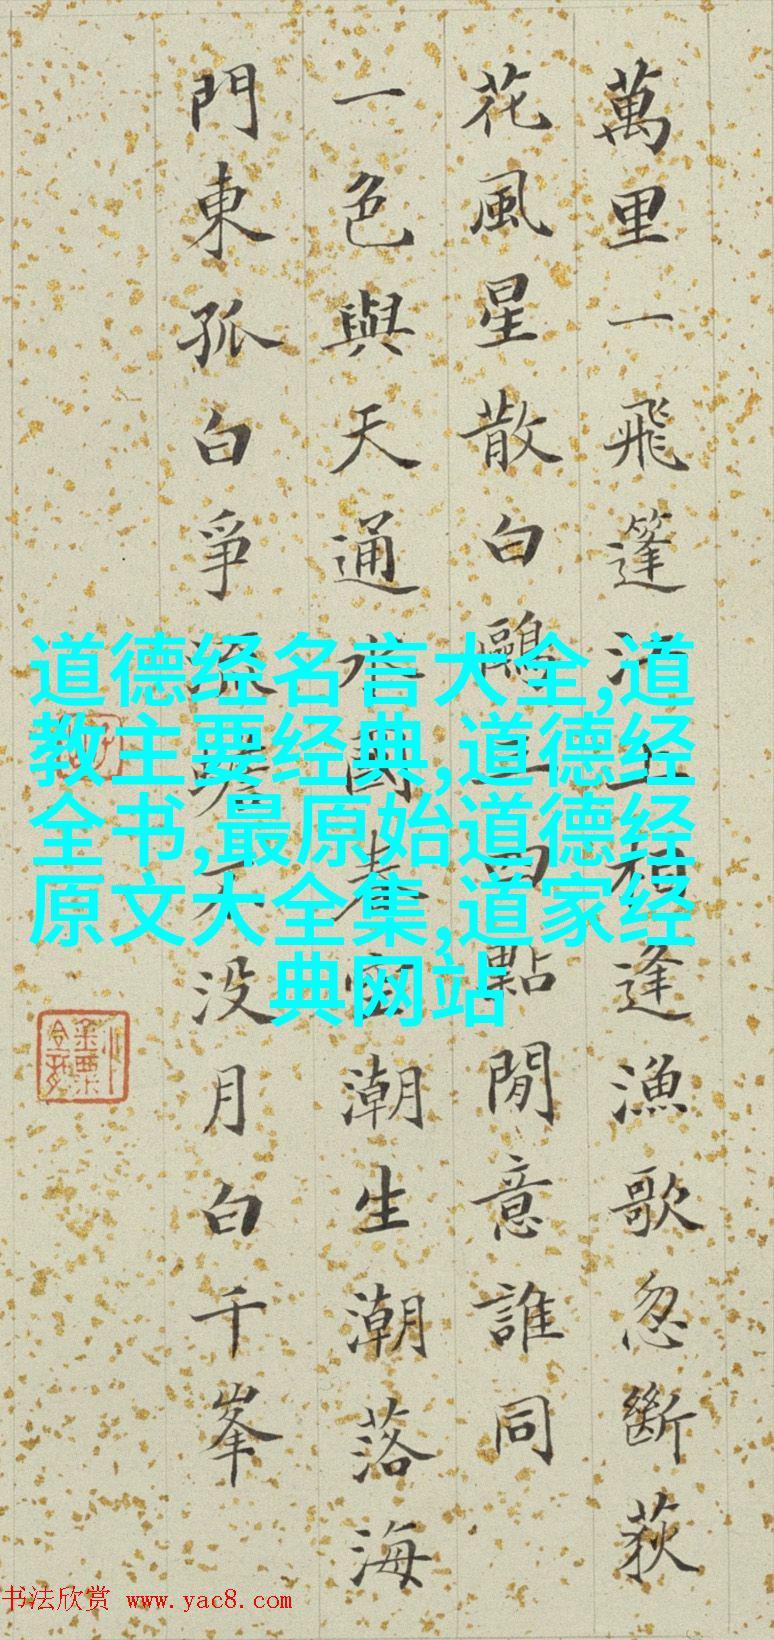 萬里一飛篷江上相逢漁歌忽斷荻
花風星散白鷗三四點閒意誰同
一色與天通水國春空潮生潮落海
門東孤白爭流不沒月白千峯
道德经名言大全,道
教主要经典,道德经
全书,最原始道德经
原文大全集,道家经
典网站
书法欣赏 www.yac8.com